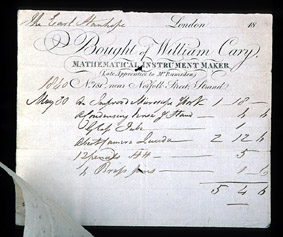 The Earl Stanhope London 18
Bought of William Cary,
MATHEMATICAL INSTRUMENT MAKER
(Late Apprentice to Mr. Ramsden)
No. 181, near Norfolk Street, Strand
1840
May 30 1 18 -
Condensing Lense & Stand 6 6
Glass Tube 1 -
Camera Lucida 2 12 6
5 -
Brass 1 - 6
5 4 6